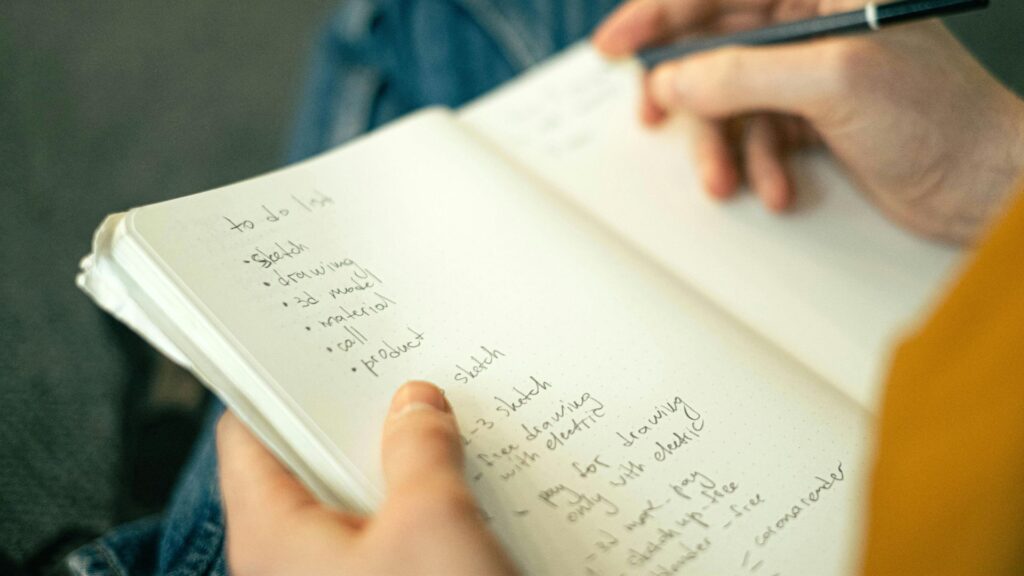 to do list
• sketch
• drawing
• 3d model
• material
• call
• product
sketch
-3 sketch
- free drawing
with electric
- pay for drawing
only with electric
more - pay
sketch up - free
- free
- corona render